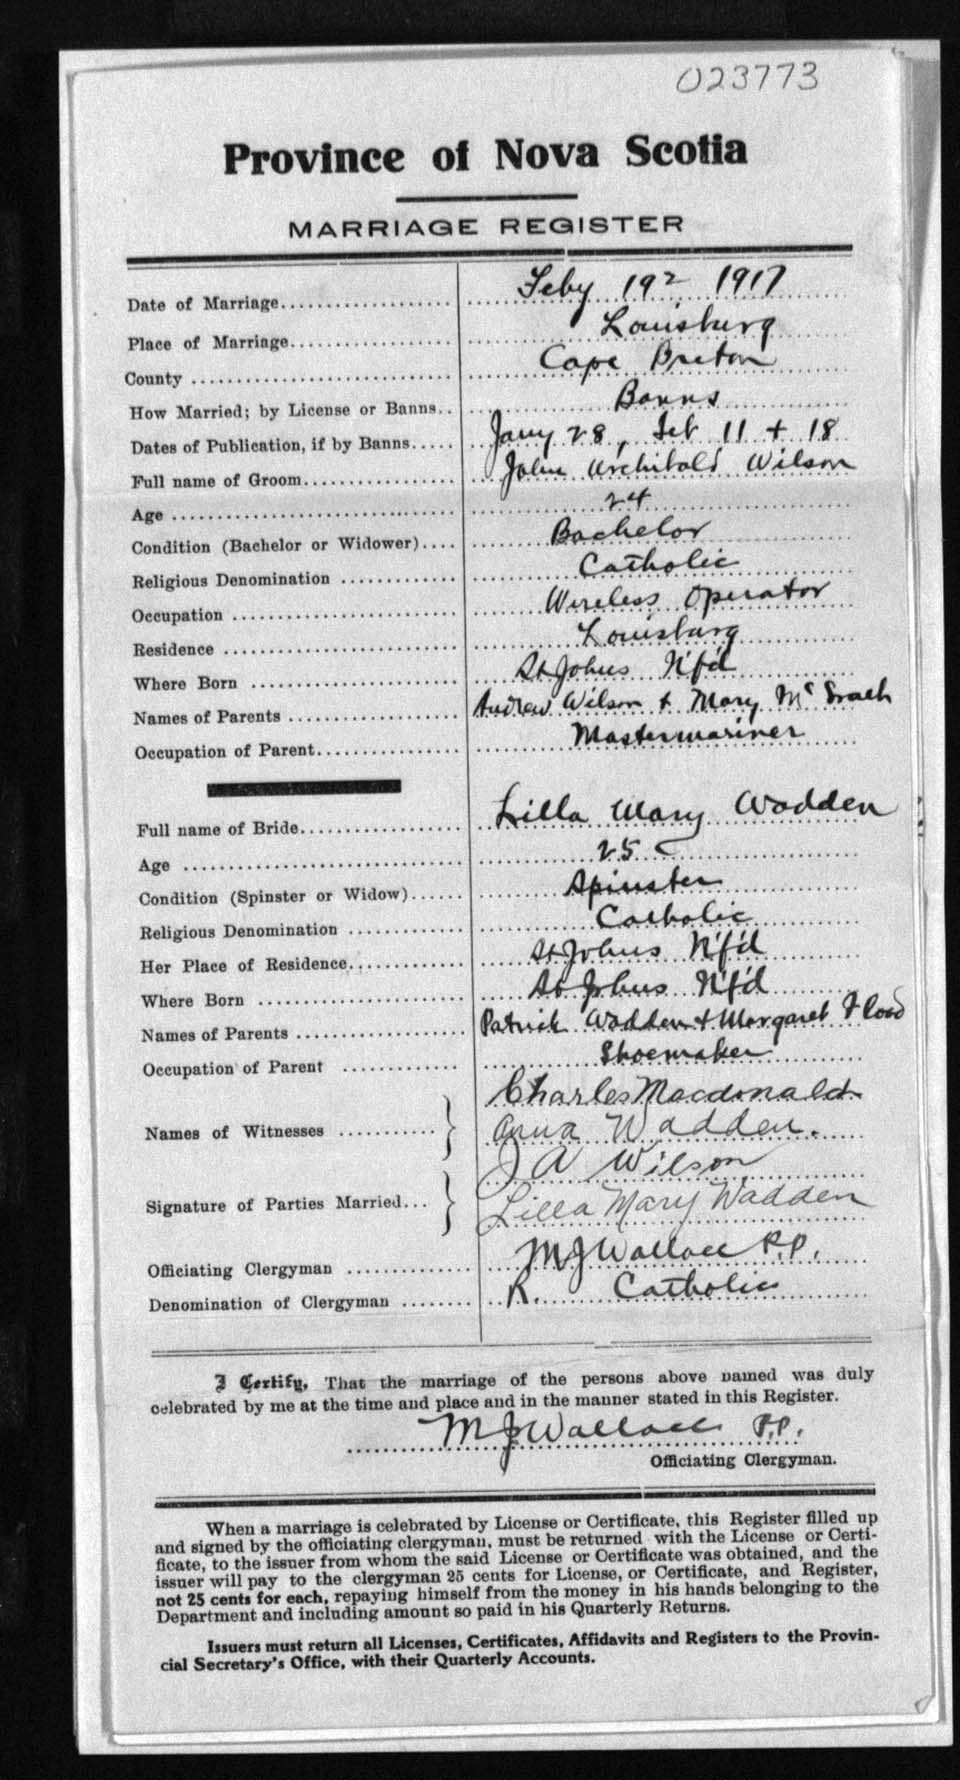 023773
Province of Nova Scotia
MARRIAGE REGISTER
Date of Marriage.................... Feby 19 1917
Place of Marriage.................... Louisburg
County .................... Cape Breton
How Married; by License or Banns.. Banns
Dates of Publication, if by Banns..... Jany 28, Feb 11 + 18
Full name of Groom.................. John Archibald Wilson
Age .................... 24
Condition (Bachelor or Widower).... Bachelor
Religious Denomination ............. Catholic
Occupation .................... Wireless Operator
Residence .................... Louisburg
Where Born .................... St Johns N'f'd
Names of Parents .................... Andrew Wilson + Mary McGrath
Occupation of Parent................. Mastermariner
Full name of Bride.................. Lilla Mary Wadden
Age .................... 25
Condition (Spinster or Widow)...... Spinster
Religious Denomination ............. Catholic
Her Place of Residence.............. St Johns N'f'd
Where Born .................... St Johns N'f'd
Names of Parents .................... Patrick Wadden + Margaret Flood
Occupation of Parent ............. Shoemaker
Charles Macdonald
Names of Witnesses ........... } Anna Wadden.
J A Wilson
Signature of Parties Married... } Lilla Mary Wadden
Officiating Clergyman ............. M J Wallace P.P.
Denomination of Clergyman ........ R. Catholic
I Certify, That the marriage of the persons above named was duly
celebrated by me at the time and place and in the manner stated in this Register.
M J Wallace P.P.
Officiating Clergyman.
When a marriage is celebrated by License or Certificate, this Register filled up
and signed by the officiating clergyman, must be returned with the License or Certi-
ficate, to the issuer from whom the said License or Certificate was obtained, and the
issuer will pay to the clergyman 25 cents for License, or Certificate, and Register,
not 25 cents for each, repaying himself from the money in his hands belonging to the
Department and including amount so paid in his Quarterly Returns.
Issuers must return all Licenses, Certificates, Affidavits and Registers to the Provin-
cial Secretary's Office, with their Quarterly Accounts.